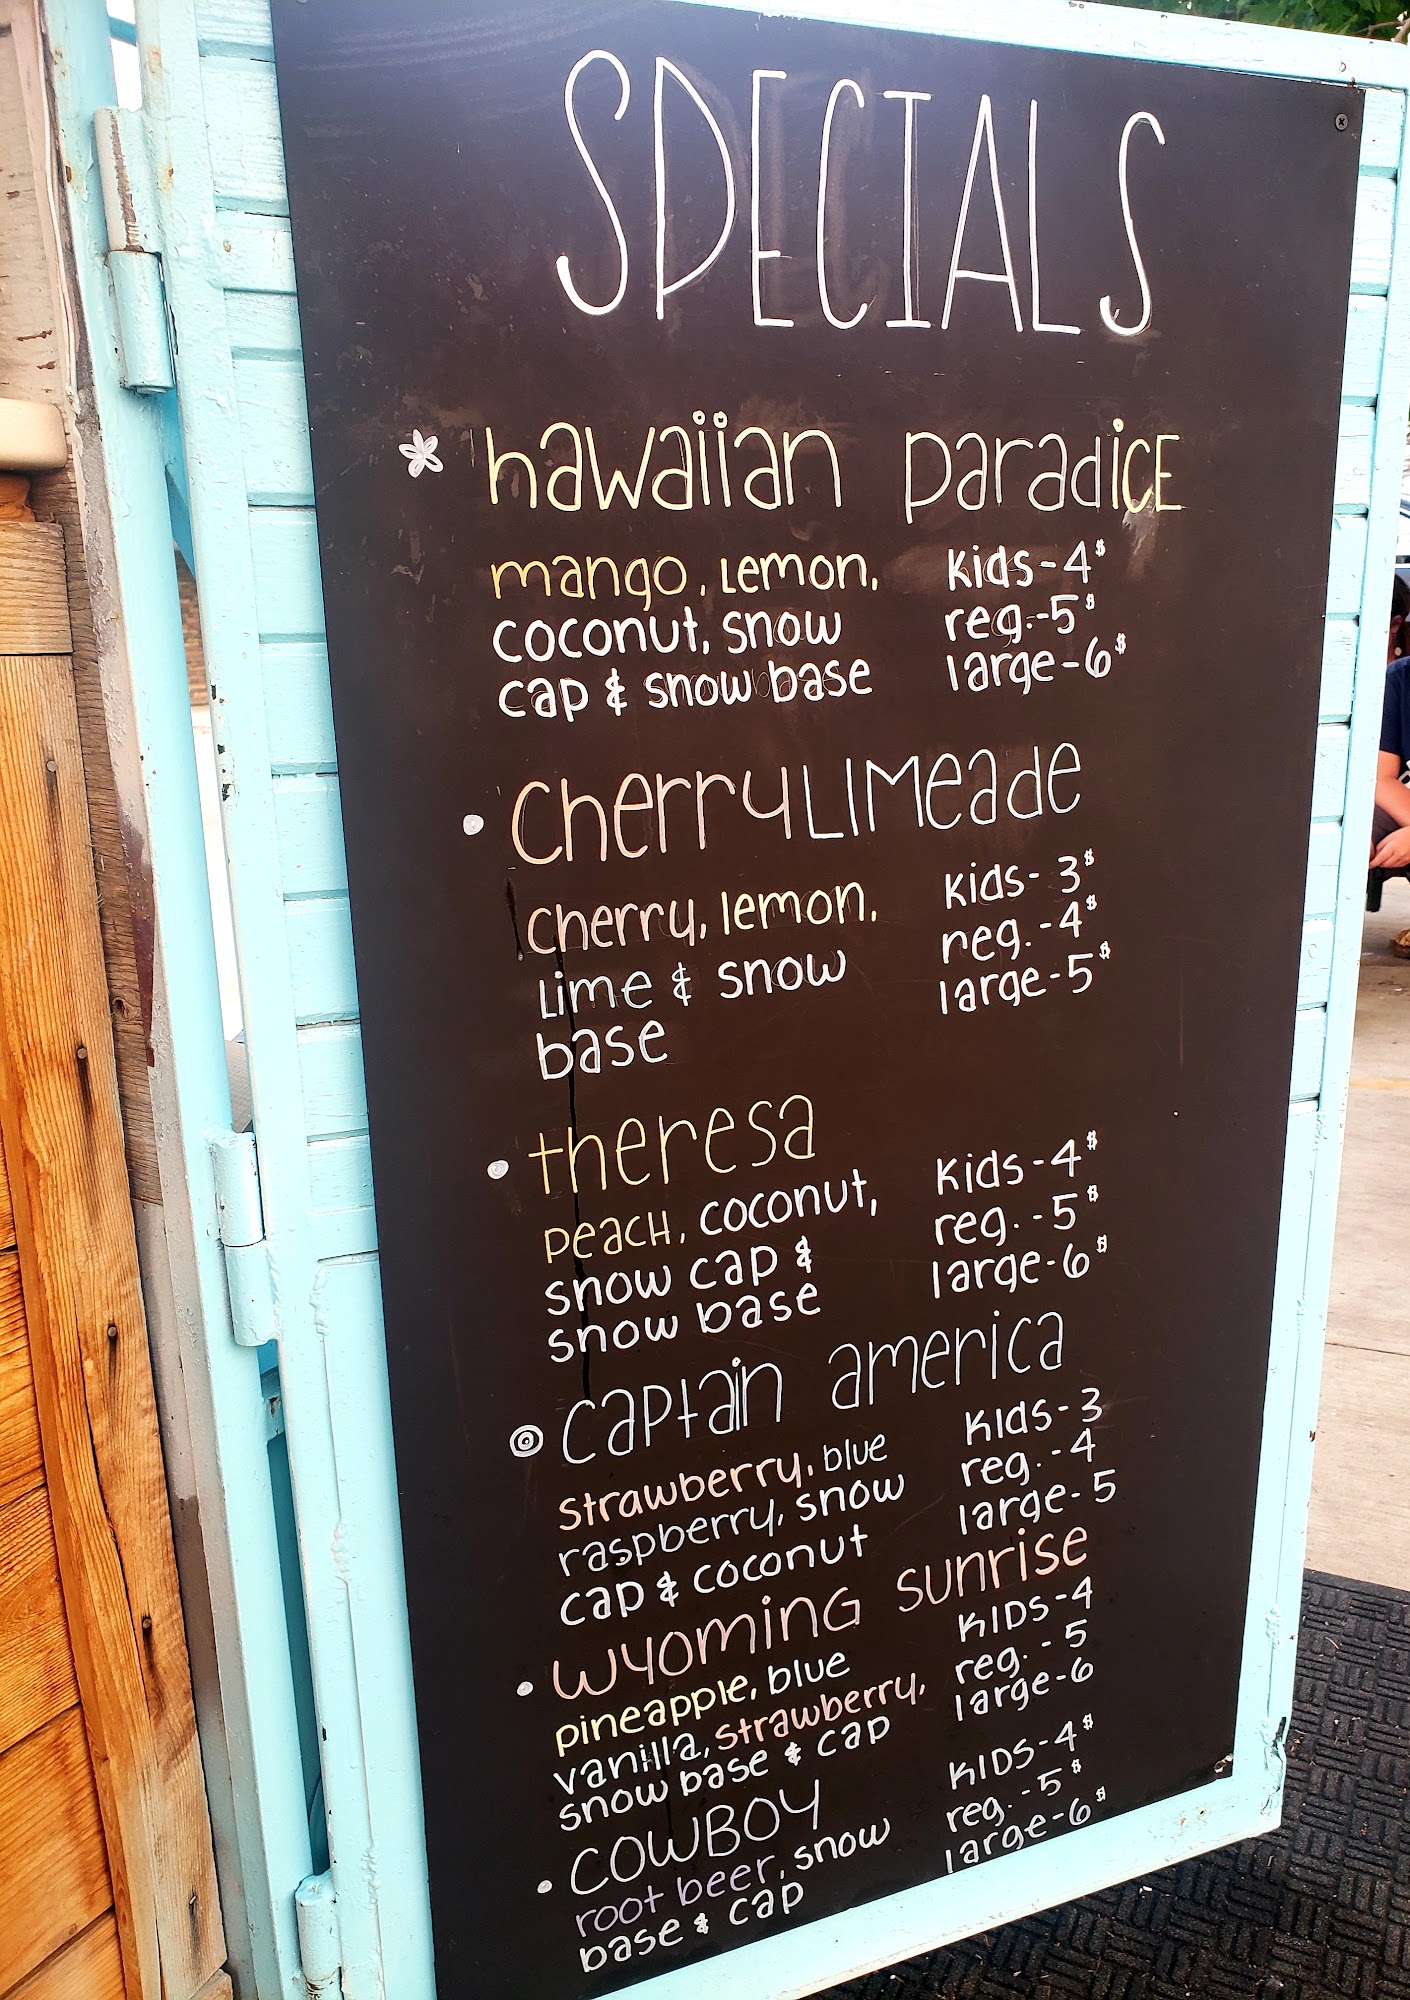 SPECIALS
hawaiian paradICE
mango, Lemon, Kids-4$
coconut, snow reg.-5$
cap & snow base large-6$
CherryLIMeade
Cherry, lemon, Kids-3$
Lime & snow reg.-4$
base large-5$
theresa
PeacH, coconut, Kids-4$
snow cap & reg.-5$
snow base large-6$
captain america
strawberry, blue Kids-3
raspberry, snow reg.-4
cap & coconut large-5
wyominG sunrise
pineapple, blue KIDS-4
vanilla, strawberry, reg.-5
snow base & cap large-6
COWBOY KIDS-4$
root beer, snow reg.-5$
base & cap large-6$